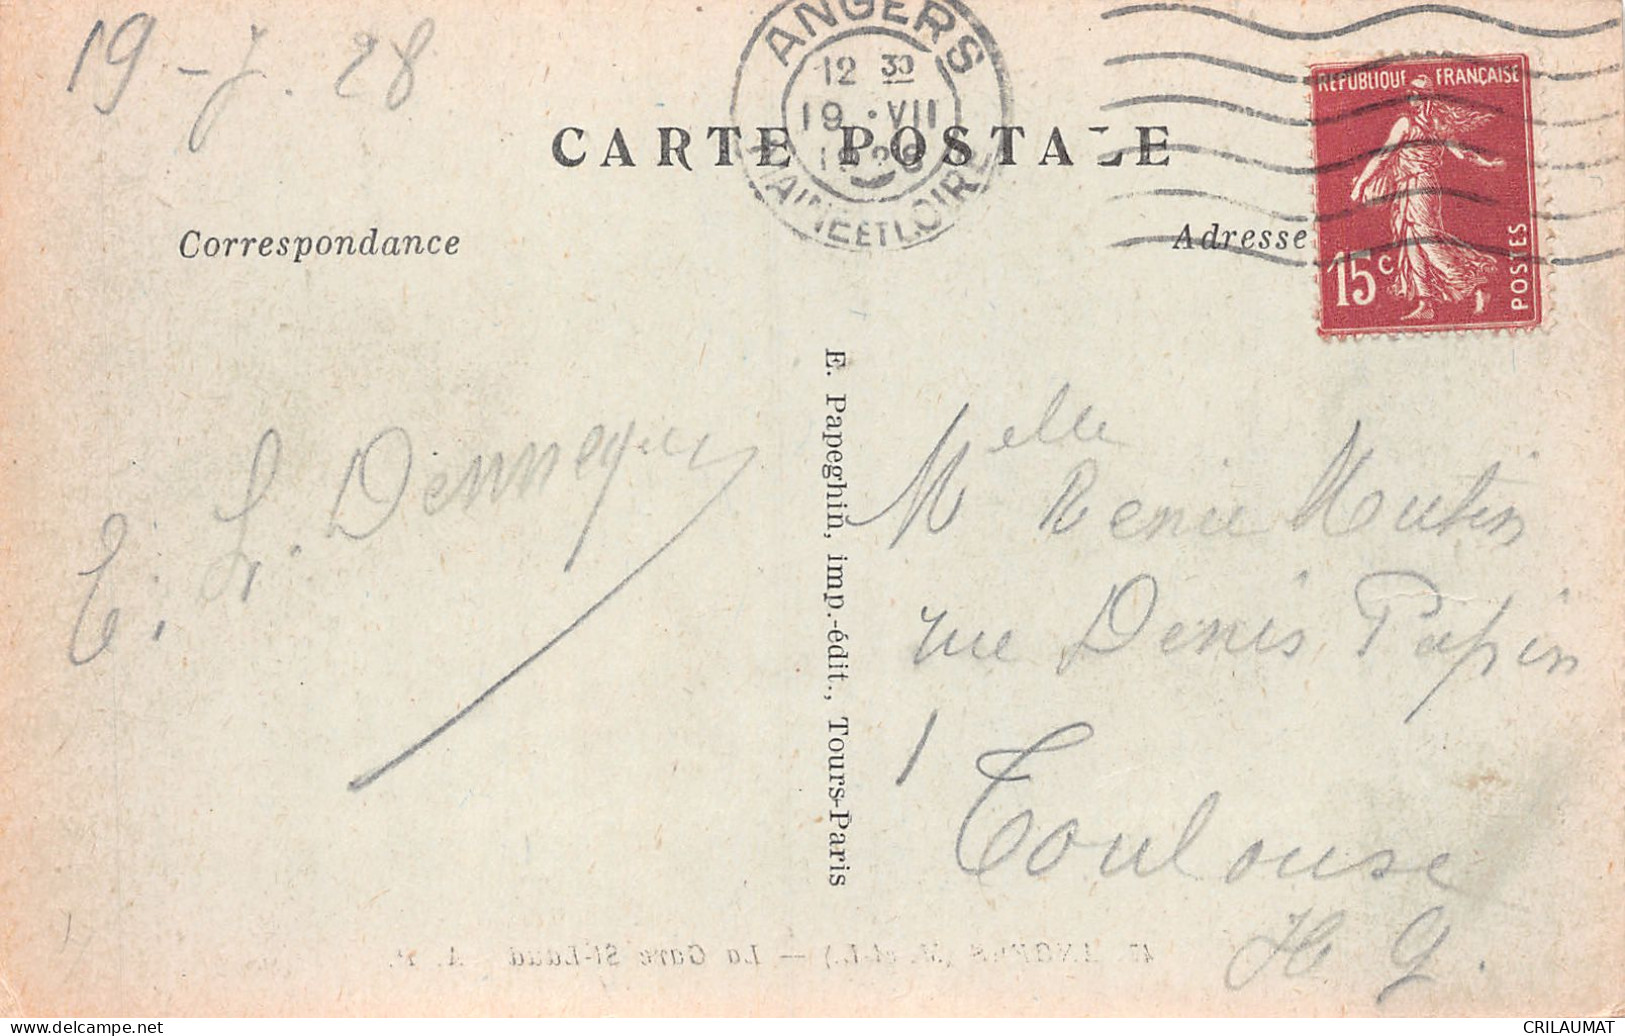 19-7.28
ANGERS
12 30
19 · VII
1928
MAINE ET LOIRE
REPUBLIQUE FRANÇAISE
15 c
POSTES
CARTE POSTALE
Correspondance
Adresse
E. Papeghin, imp.-édit., Tours-Paris
E.
Melle Renée Mutin
rue Denis Papin
1 Toulouse
H G.
ANGERS (M.-et-L.) — La Gare St-Laud A. P.
CRILAUMAT